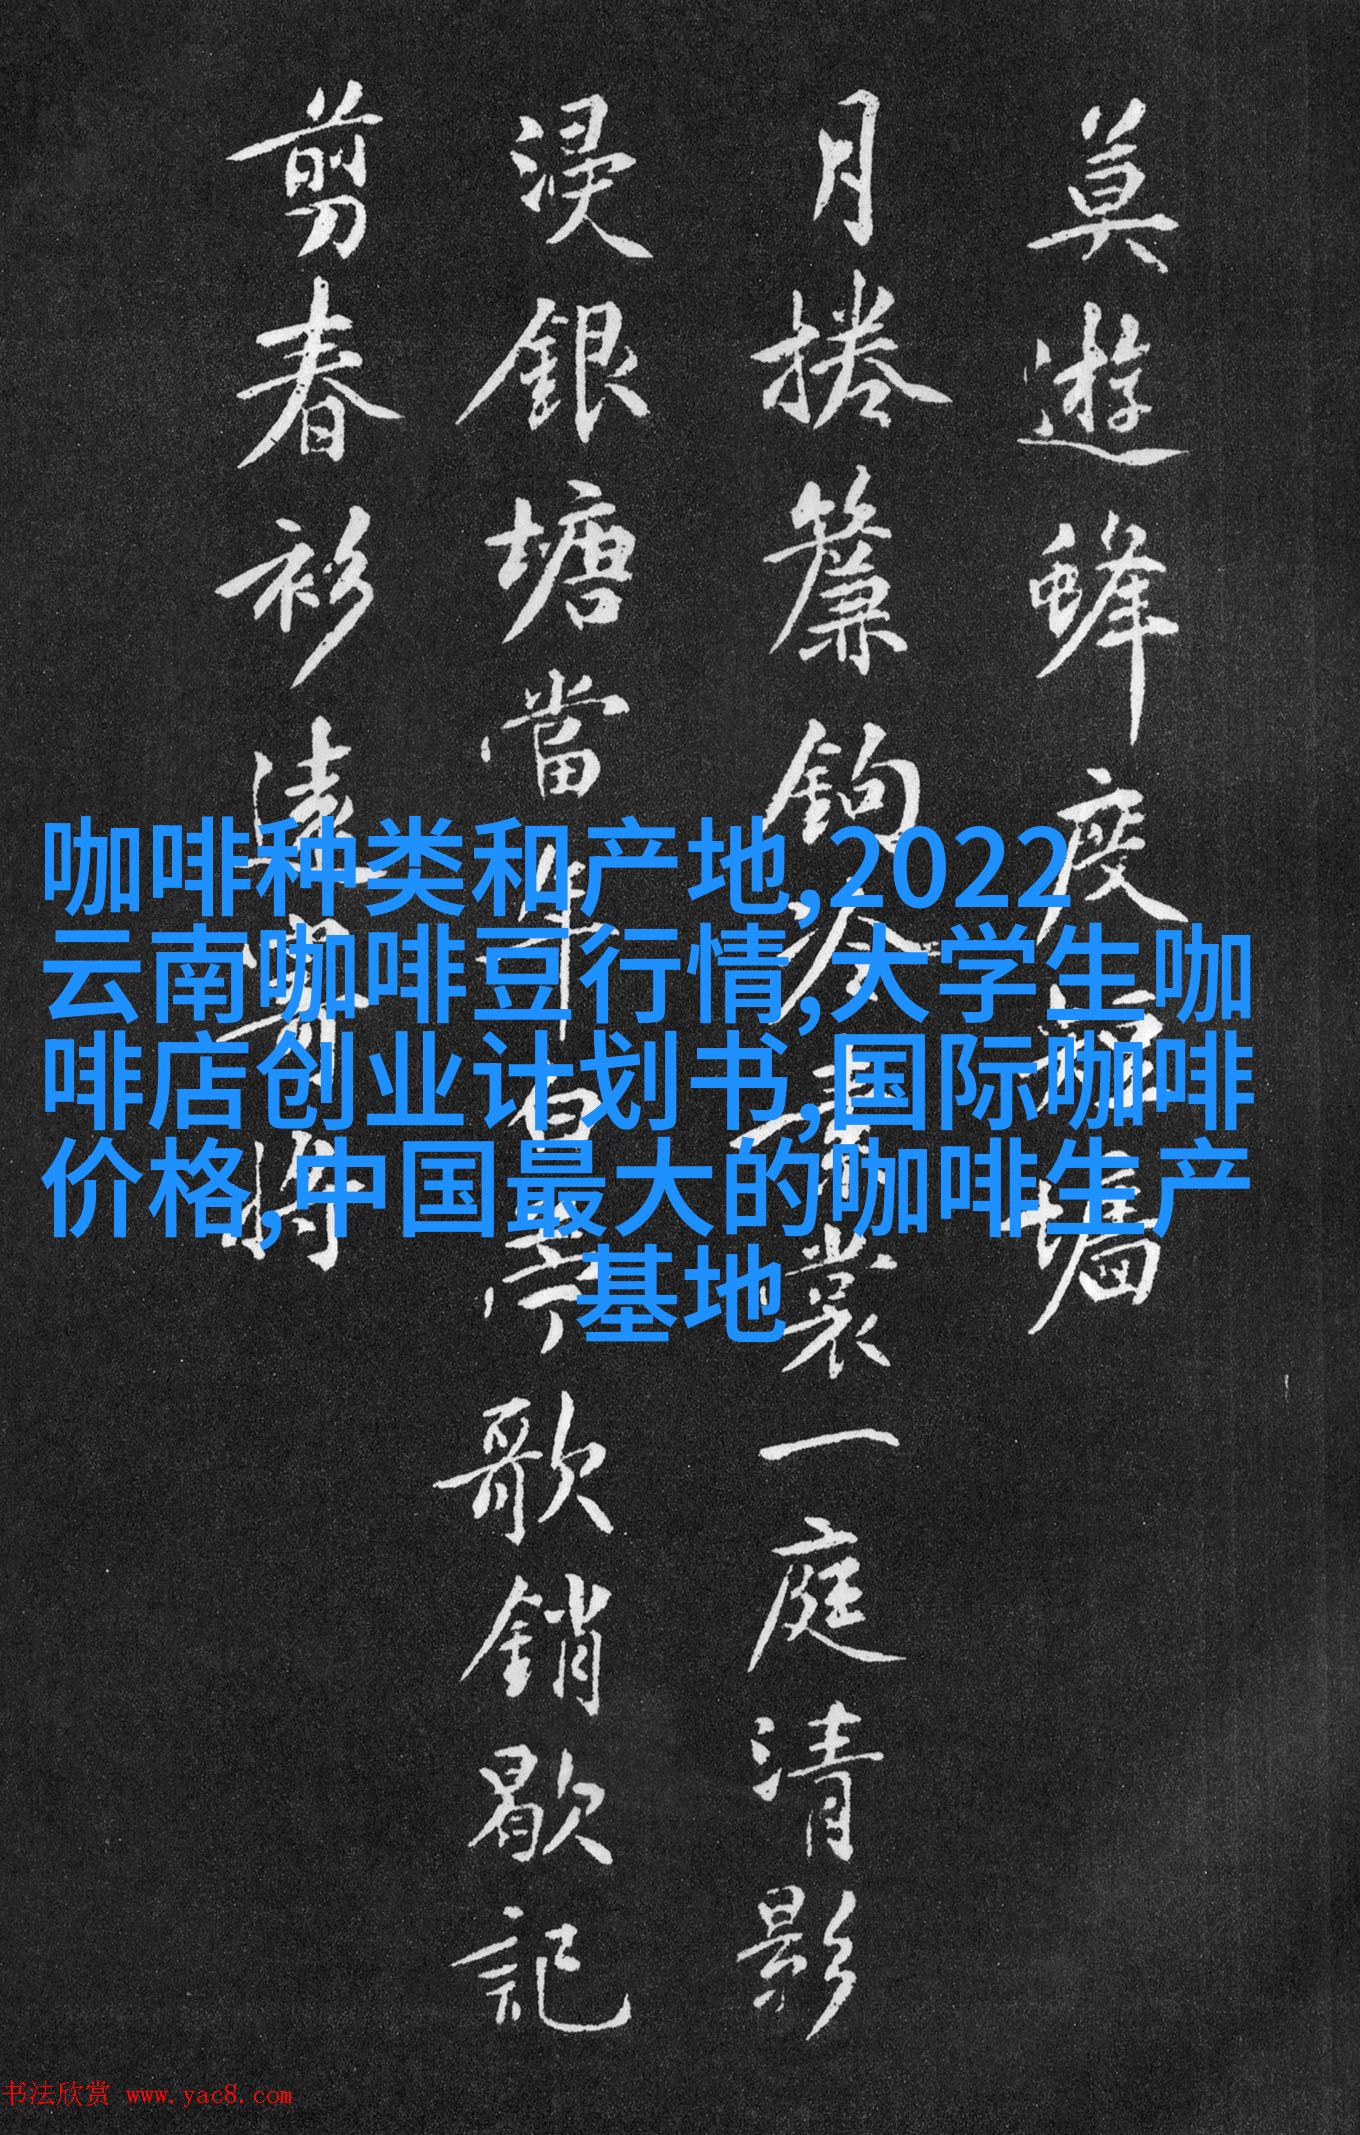 莫遊蜂度短墻
月捲簾鉤冷素裳一庭清影
浸銀塘當年皇亭歌銷歇記
剪春衫遠寄將
咖啡种类和产地,2022
云南咖啡豆行情,大学生咖
啡店创业计划书,国际咖啡
价格,中国最大的咖啡生产
基地
书法欣赏 www.yac8.com